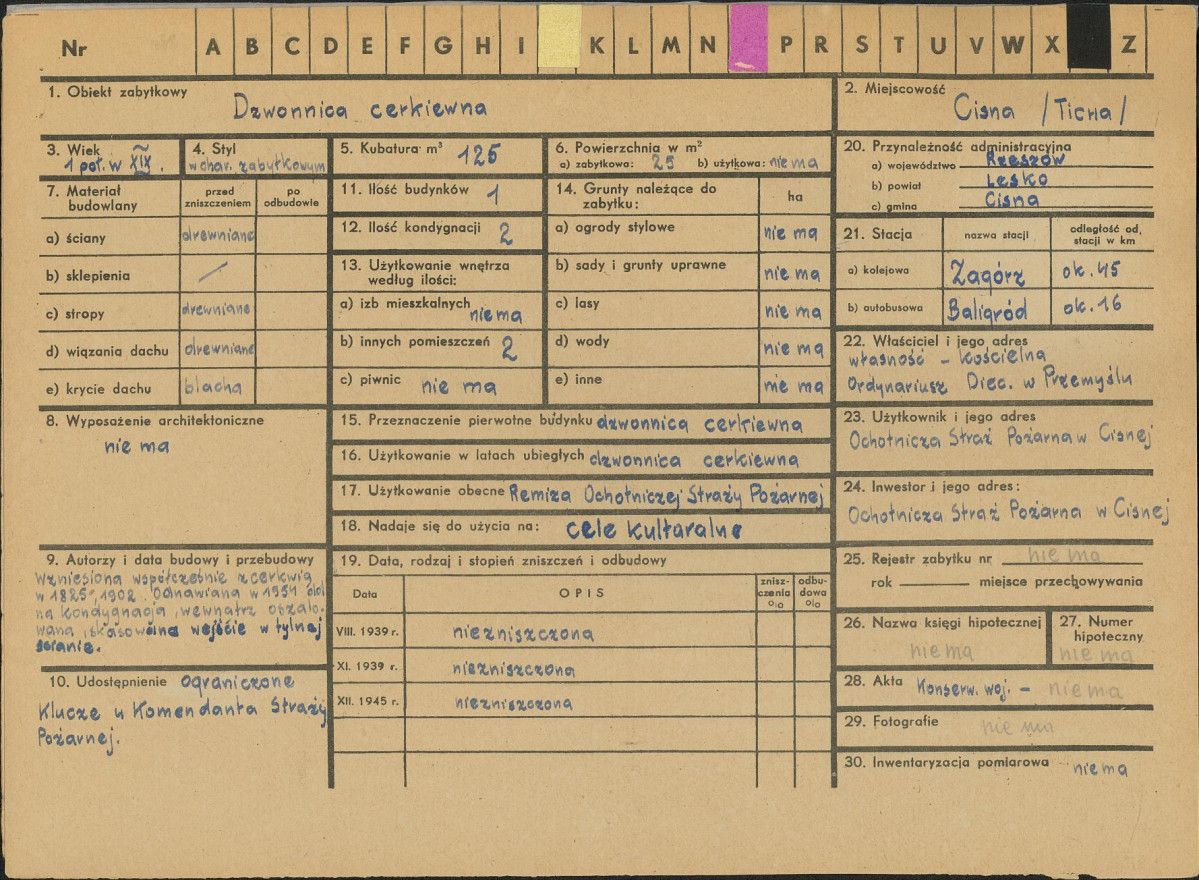 Nr A B C D E F G H I K L M N P R S T U V W X Z
1. Obiekt zabytkowy Dzwonnica cerkiewna
2. Miejscowość Cisna /Ticha/
3. Wiek
1 poł. w XIX.
4. Styl
w char. zabytkowym
5. Kubatura m³ 125
6. Powierzchnia w m²
a) zabytkowa: 25 b) użytkowa: nie ma
20. Przynależność administracyjna
a) województwo Rzeszów
b) powiat Lesko
c) gmina Cisna
7. Materiał budowlany
przed zniszczeniem
po odbudowie
a) ściany drewniane
b) sklepienia /
c) stropy drewniane
d) wiązania dachu drewniane
e) krycie dachu blacha
11. Ilość budynków 1
12. Ilość kondygnacji 2
13. Użytkowanie wnętrza
według ilości:
a) izb mieszkalnych nie ma
b) innych pomieszczeń 2
c) piwnic nie ma
14. Grunty należące do
zabytku:
ha
a) ogrody stylowe nie ma
b) sady i grunty uprawne nie ma
c) lasy nie ma
d) wody nie ma
e) inne nie ma
21. Stacja
nazwa stacji
odległość od,
stacji w km
a) kolejowa Zagórz ok. 45
b) autobusowa Baligród ok. 16
22. Właściciel i jego adres
własność – kościelna
Ordynariusz Diec. w Przemyślu
8. Wyposażenie architektoniczne
nie ma
15. Przeznaczenie pierwotne budynku dzwonnica cerkiewna
16. Użytkowanie w latach ubiegłych dzwonnica cerkiewna
17. Użytkowanie obecne Remiza Ochotniczej Straży Pożarnej
18. Nadaje się do użycia na: cele kulturalne
23. Użytkownik i jego adres
Ochotnicza Straż Pożarna w Cisnej
24. Inwestor i jego adres:
Ochotnicza Straż Pożarna w Cisnej
9. Autorzy i data budowy i przebudowy
Wzniesiona współcześnie z cerkwią
w 1825, 1902. Odnawiana w 1954
na kondygnacja, wewnątrz oszalo-
wana, skasowana wejście w tylnej
ścianie.
10. Udostępnienie ograniczone
Klucze u Komendanta Straży
Pożarnej.
19. Data, rodzaj i stopień zniszczeń i odbudowy
Data
OPIS
znisz-
czenia
%
odbu-
dowa
%
VIII. 1939 r. niezniszczona
XI. 1939 r. niezniszczona
XII. 1945 r. niezniszczona
25. Rejestr zabytku nr nie ma
rok miejsce przechowywania
26. Nazwa księgi hipotecznej
nie ma
27. Numer
hipoteczny
nie ma
28. Akta Konserw. woj. – nie ma
29. Fotografie nie ma
30. Inwentaryzacja pomiarowa nie ma